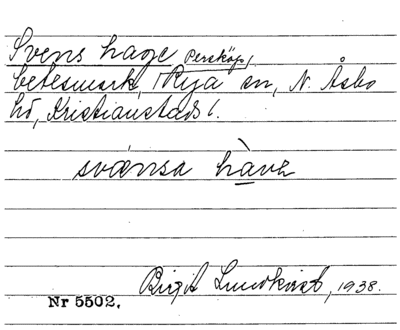 Svens hage Persköp,
betesmark, Rya sn, N. Åsbo
hd, Kristianstads l.
svænsa hàva
Birgit Lundkvist, 1938.
Nr 5502.